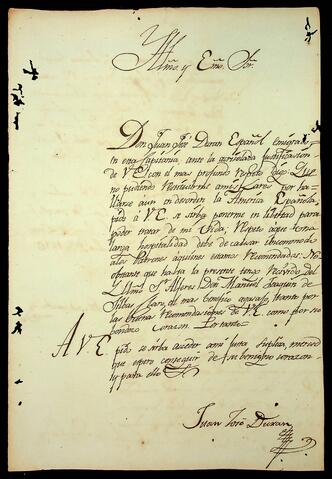 Yllmo. y Exmo. Sor.
Don Juan José Duran Español emigrado
en esta Capitania, ante la acrisolada justificacion
de V.E. con el mas profundo respeto dize: Que
no pudiendo restituirme a mis Lares por ha-
llarse aun en desorden la America Española,
pido á V.E. se sirba ponerme en libertad para
poder tratar de mi vida; respeto aque tan
larga hospitalidad debe de causar incomodi
a los Patrones aquienes estamos recomendados. No
obstante que hasta la presente tengo recivido del
Sr. Alferes Don Manuel Joaquin de
el mas benefico agasajo, tanto por
las buenas recomendaciones de V.E. como por su
bondoso corazon. Por tanto
A V.E.
pido se sirba acceder ami justa suplica, merced
que espero conseguir de su benigno corazon
y para ello
Juan José Duran